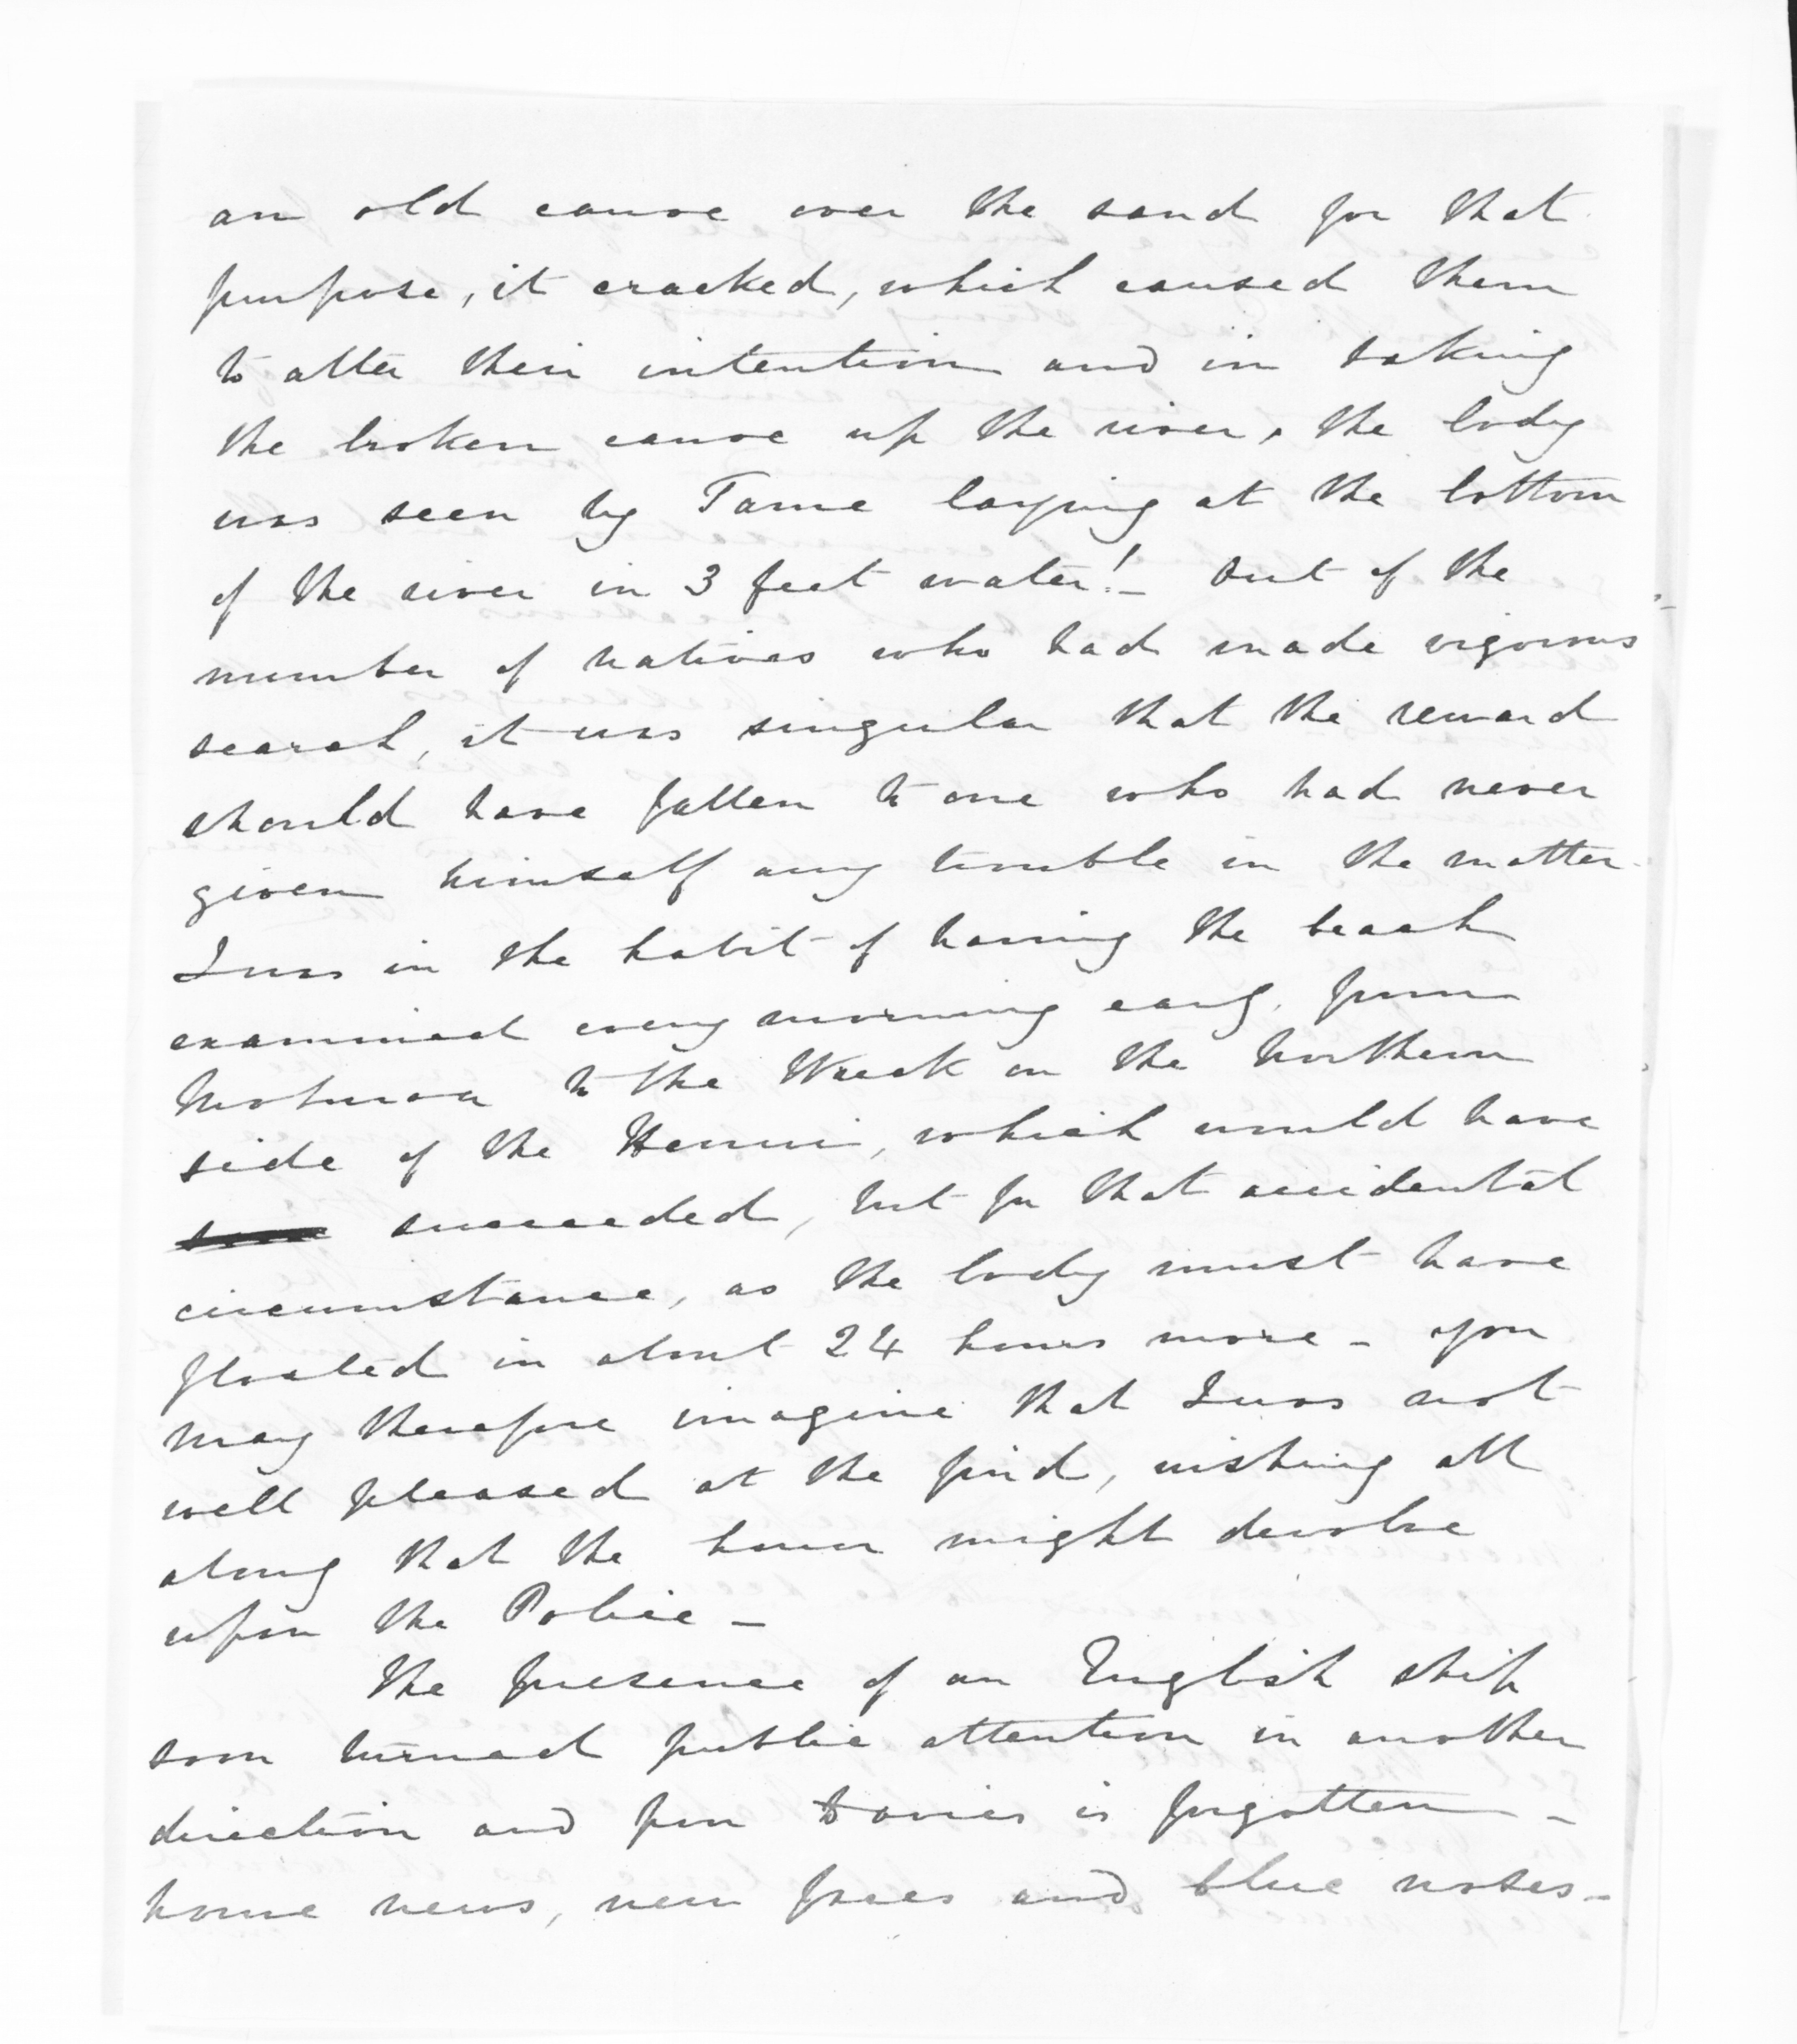 an old canoe over the sand for that
purpose, it cracked, which caused them
to alter their intention and in taking
the broken canoe up the river, the body
was seen by Tame laying at the bottom
of the river in 3 feet water! _ Out of the
number of natives who had made vigorous
search, it was singular that the reward
should have fallen to one who had never
given himself any trouble in the matter -
I was in the habit of having the beach
examined every morning early from
Moturoa to the Wreck on the Northern
side of the Henui, which would have
succeeded, but for that accidental
circumstance, as the body must have
floated in about 24 hours more - you
may therefore imagine that I was not
well pleased at the find, wishing all
along that the honor might devolve
upon the Police -
The presence of an English ship
soon turned public attention in another
direction and poor Davies is forgotten -
home news, new faces and blue noses -